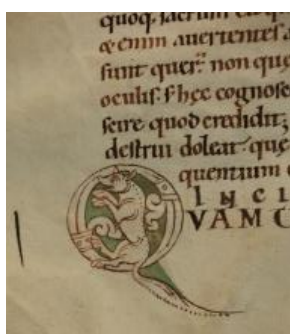 quoq. sacrum
enim auertentes
sunt quer. non quę
oculis. s hęc cognos
scire quod credidit;
destrui doleat. quę
quentium
Q INCI
VAM C